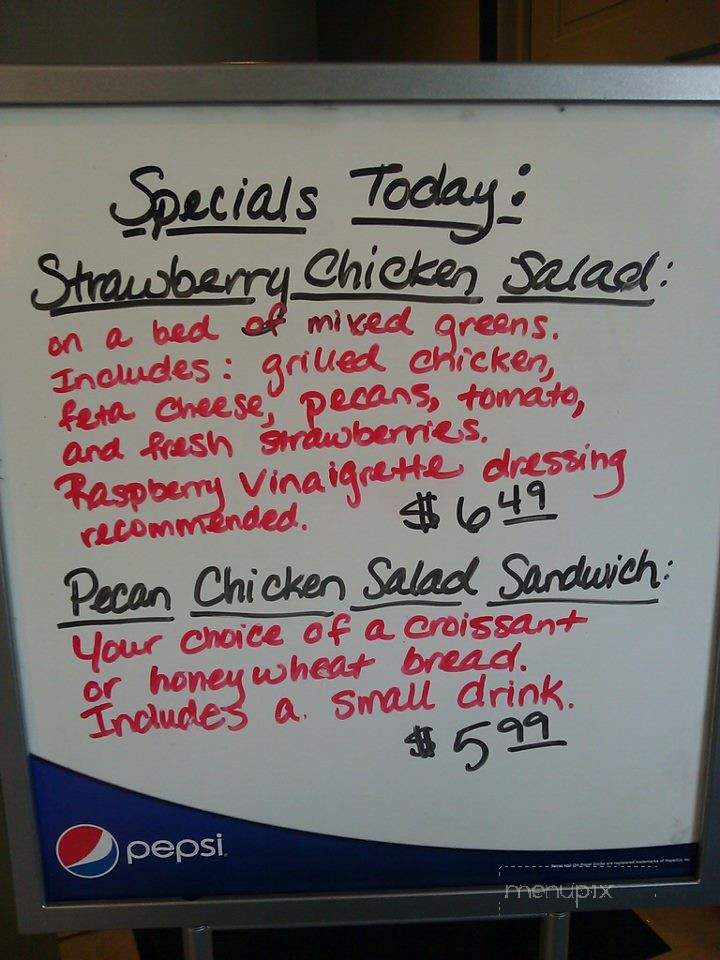 Specials Today:
Strawberry Chicken Salad:
on a bed of mixed greens.
Includes: grilled chicken,
feta cheese, pecans, tomato,
and fresh strawberries.
Raspberry Vinaigrette dressing
recommended. $6 49
Pecan Chicken Salad Sandwich:
Your choice of a croissant
or honey wheat bread.
Includes a small drink.
$5 99
pepsi
menupix